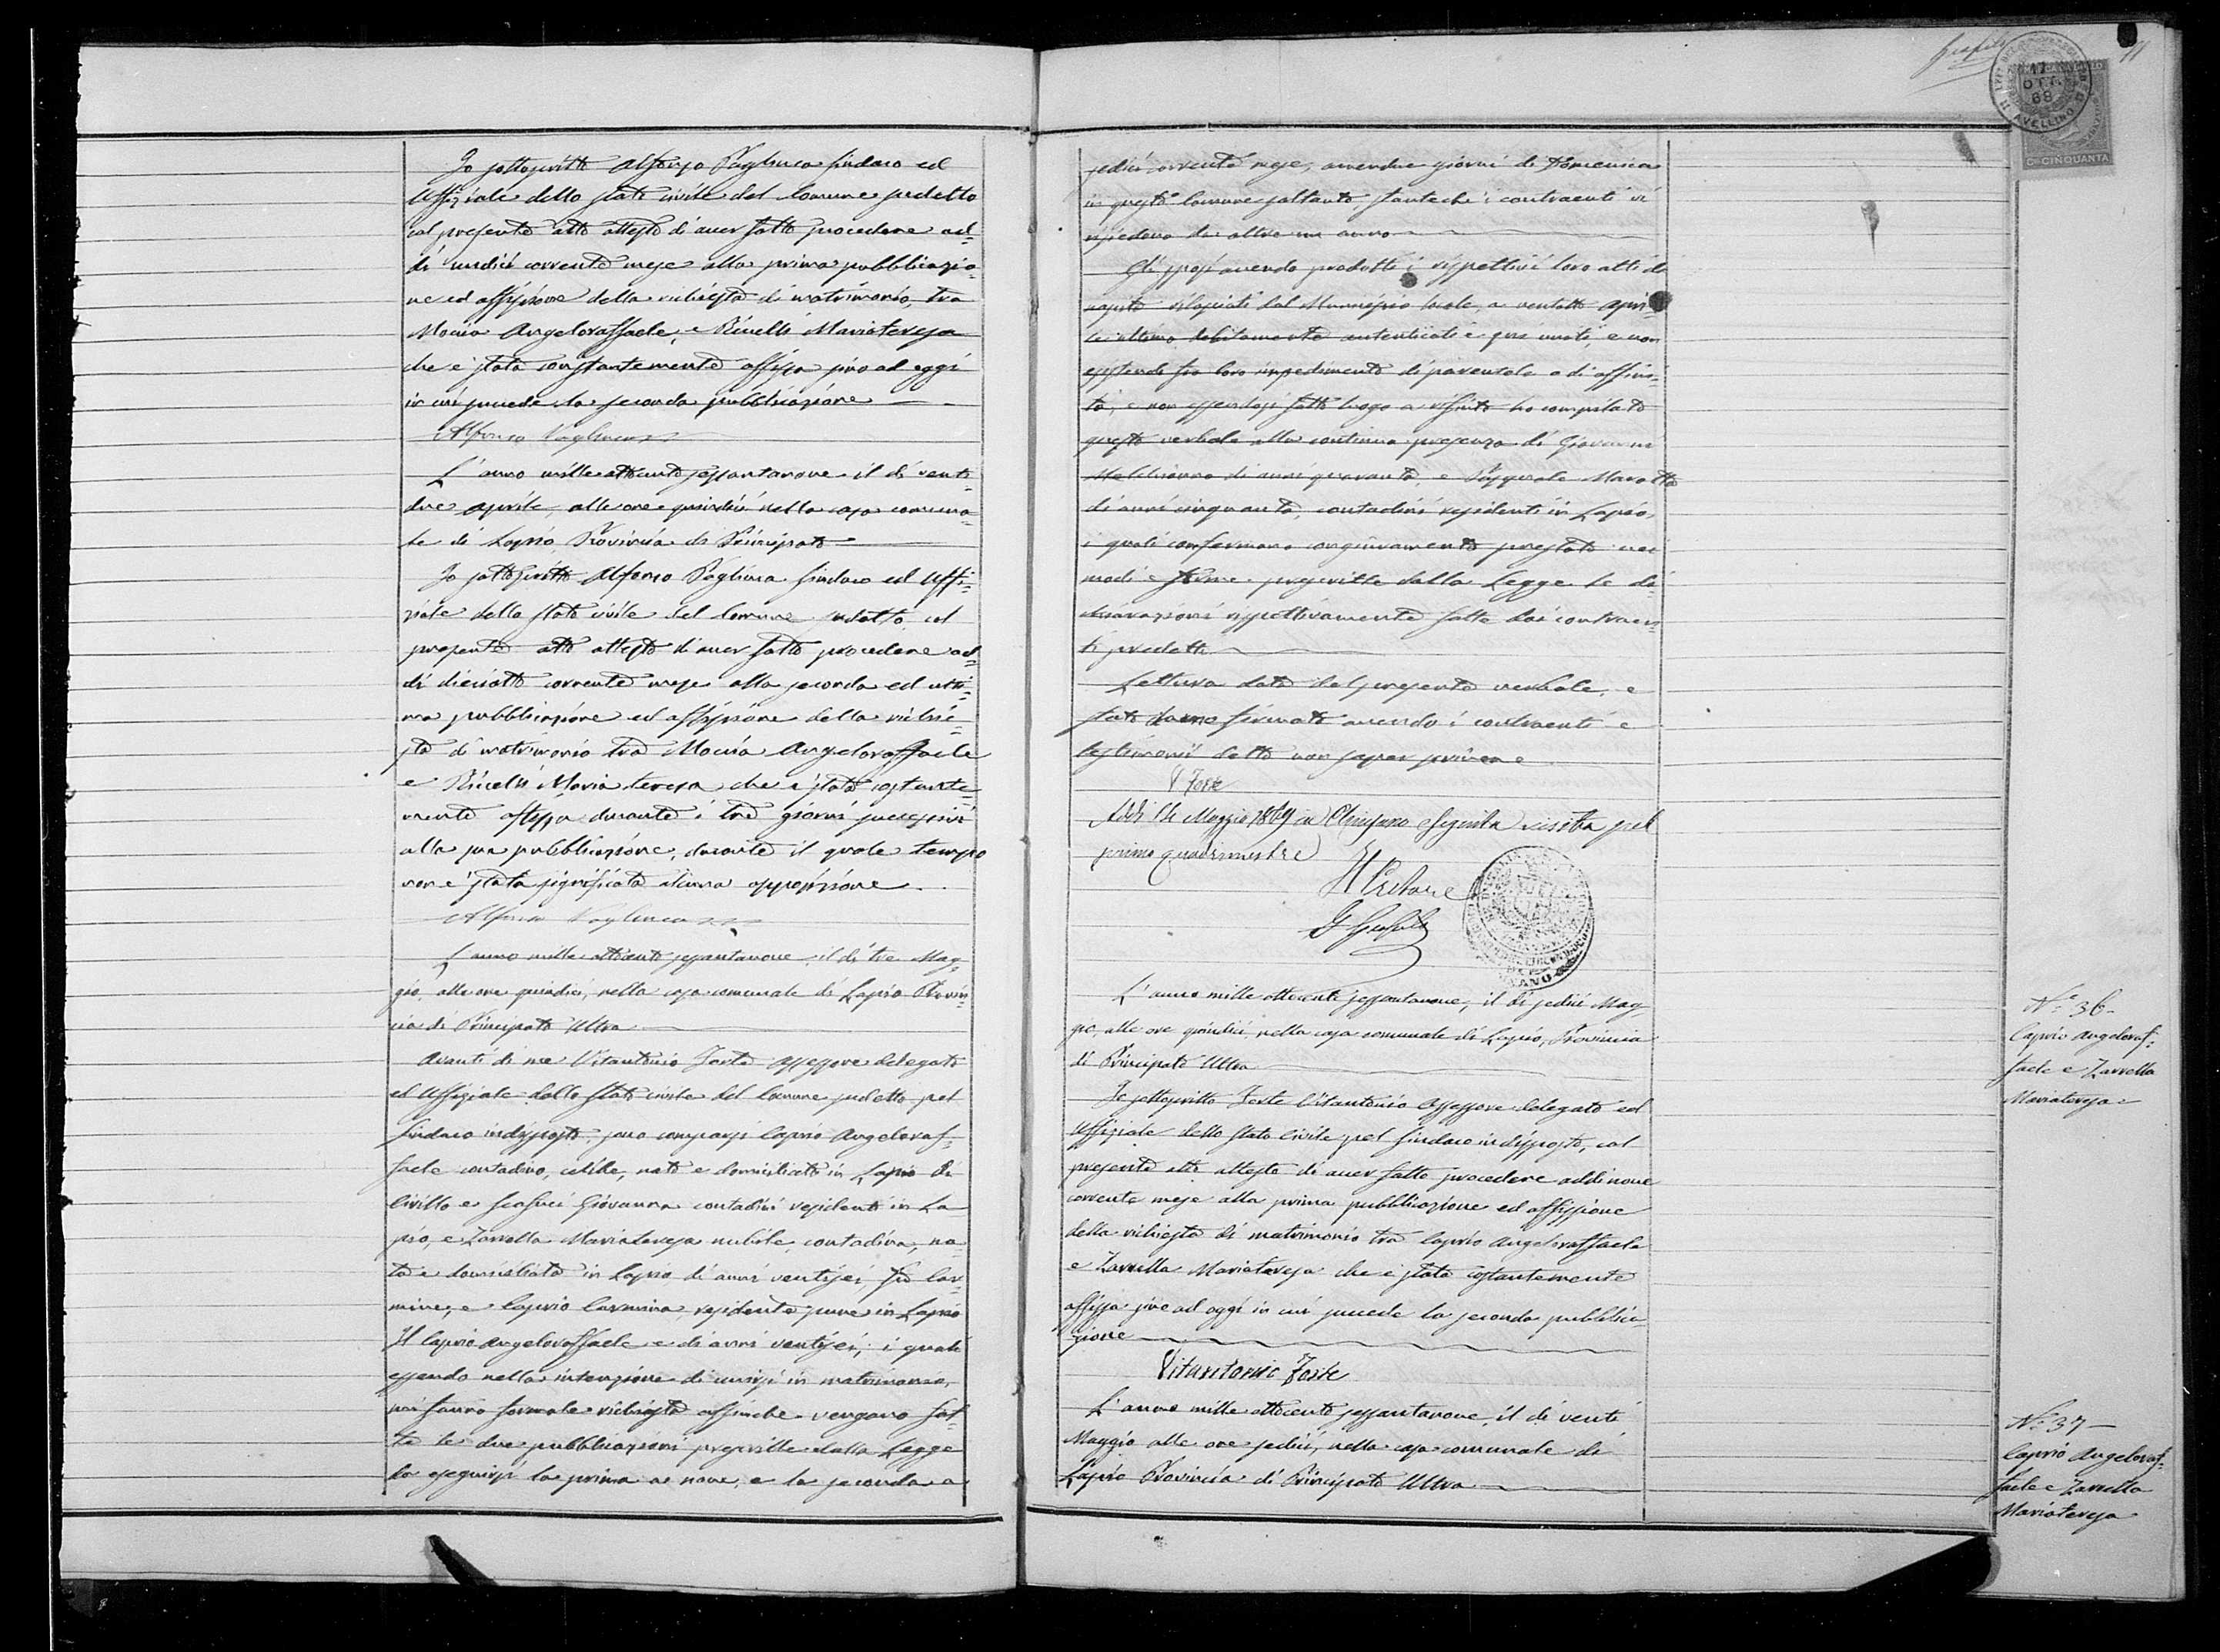 Io sottoscritto Alfonso Pagliuca Sindaco ed
Uffiziale dello stato civile del Comune sudetto
col presente atto attesto di aver fatto procedere ad-
dì undici corrente mese alla prima pubblicazio-
ne ed affissione della richiesta di matrimonio tra
Moccia Angeloraffaele, e Ricielli Mariateresa
che è stata constantemente affissa sino ad oggi
in cui succede la seconda pubblicazione
Alfonso Pagliuca
L'anno mille ottocento sessantanove il dì venti-
due Aprile, alle ore quindici nella casa comuna-
le di Lapio, Provincia di Principato
Io sottoscritto Alfonso Pagliuca Sindaco ed Uffi-
ziale dello stato civile del Comune sudetto col
presente atto attesto di aver fatto procedere ad-
dì dieciotto corrente mese alla seconda ed ulti-
ma pubblicazione ed affissione della richie-
sta di matrimonio tra Moccia Angeloraffaele
e Ricielli Maria teresa che è stata costante-
mente affissa durante i tre giorni successivi
alla sua pubblicazione, durante il quale tempo
non è stata significata alcuna opposizione.
Alfonso Pagliuca
L'anno mille ottocento sessantanove il dì tre Mag-
gio, alle ore quindici, nella casa comunale di Lapio Provin-
cia di Principato Ultra
Avanti di me Vitantonio Forte Assessore delegato
ed Uffiziale dello stato civile del Comune sudetto pel
Sindaco indisposto, sono comparsi Caprio Angeloraf-
faele contadino, celibe, nato e domiciliato in Lapio di
Cirillo e Giovanna contadini residenti in La-
pio, e Zarrella Mariateresa nubile, contadina, na-
ta e domiciliata in Lapio di anni ventisei fu Car-
mine, e Caprio Carmina, residente pure in Lapio
Il Caprio Angeloraffaele e di anni ventisei, i quali
essendo nella intenzione di unirsi in matrimonio,
mi fanno formale richiesta affinche vengano fat-
te le due pubblicazioni prescritte dalla Legge
da eseguirsi la prima a nove, e la seconda a
11
17
OTT
68
AVELLINO
Cmi CINQUANTA
sedici corrente mese, amendue giorni di Domenica
in questo Comune soltanto, stanteche i contraenti vi
risiedono da oltre un anno
Gli sposi avendo prodotti i rispettivi loro atti di
nascita rilasciati dal Municipio locale, a ventotto Apri-
le ultimo debitamente autenticati e qui uniti, e non
esistendo fra loro impedimento di parentela o di affini-
tà, e non essendosi fatto luogo a rifiuto ho compilato
questo verbale alla continua presenza di Giovanni
di anni quaranta, e Pasquale Marotta
di anni cinquanta, contadini residenti in Lapio,
i quali confermano con giuramento prestato nei
modi e forme prescritte dalla Legge le di-
chiarazioni rispettivamente fatte dai contraen-
ti predetti
Lettura data del presente verbale, è
stato da me firmato avendo i contraenti e
testimonii detto non saper scrivere
V Forte
Addì 14 Maggio 1869 in Chiusano Seguita visita pel
primo quadrimestre
L'anno mille ottocento sessantanove, il dì sedici Mag-
gio, alle ore quindici, nella casa comunale di Lapio, Provincia
di Principato Ultra
Io sottoscritto Forte Vitantonio Assessore delegato ed
Uffiziale dello Stato Civile pel Sindaco indisposto, col
presente atto attesto di aver fatto procedere addi nove
corrente mese alla prima pubblicazione ed affissione
della richiesta di matrimonio tra Caprio Angeloraffaele
e Zarrella Mariateresa che è stata costantemente
affissa sino ad oggi in cui succede la seconda pubblica-
zione
Vitantonio Forte
L'anno mille ottocento sessantanove, il dì venti
Maggio alle ore sedici, nella casa comunale di
Lapio Provincia di Principato Ultra
N.° 36-
Caprio Angeloraf-
faele e Zarrella
Mariateresa
N.° 37-
Caprio Angeloraf-
faele e Zarrella
Mariateresa